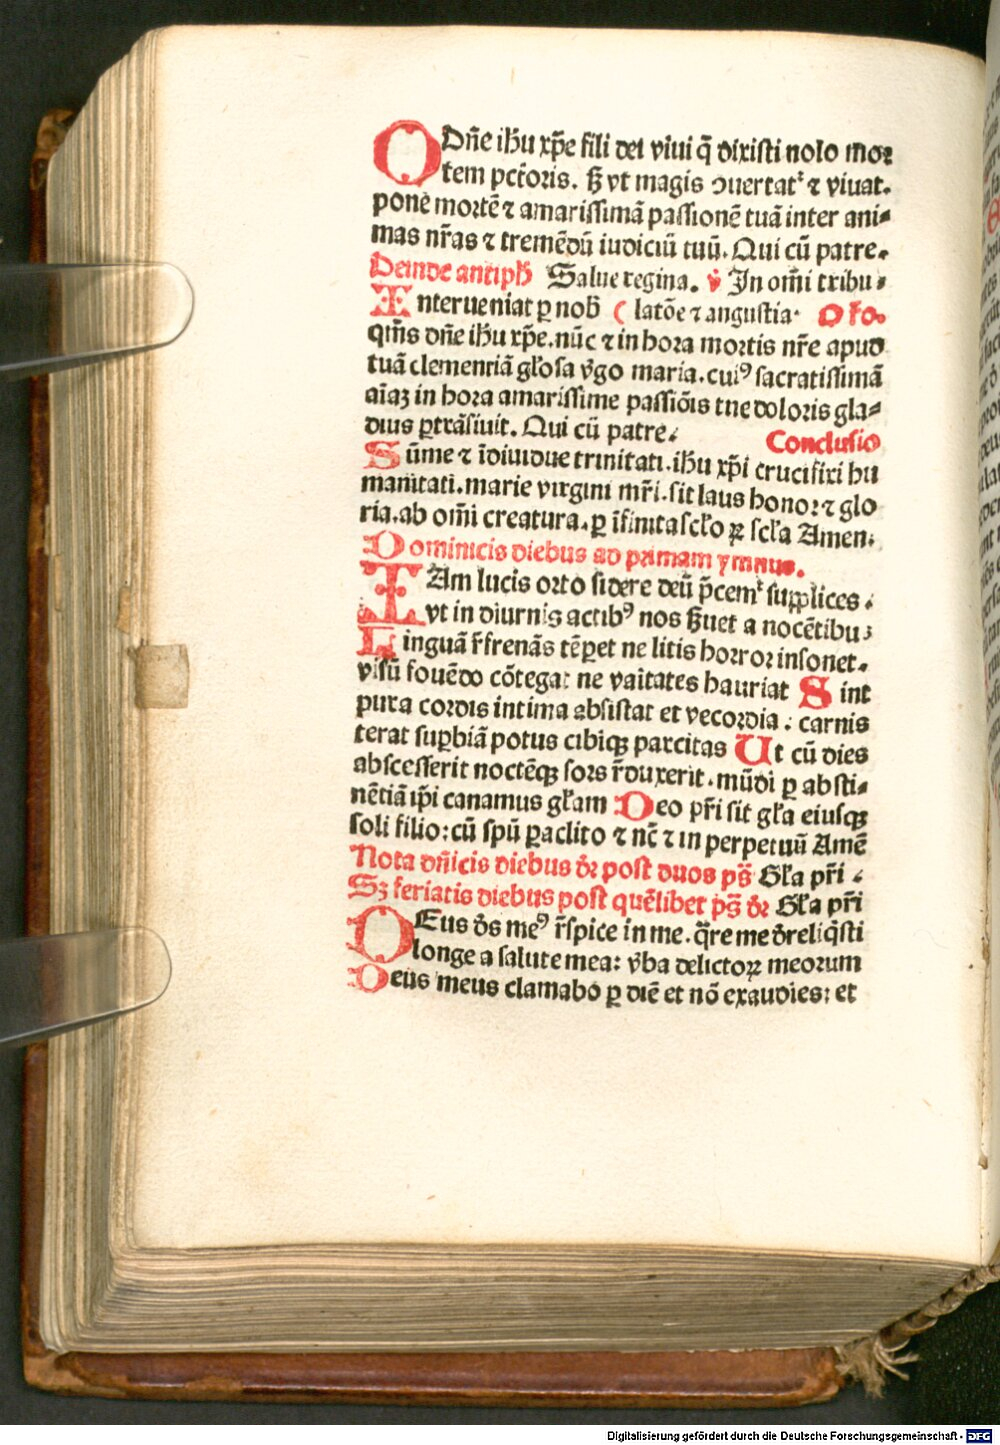 O Dn̄e ih̄u xp̄e fili dei viui q̄ dixisti nolo mor
tem pctōris. sꝫ vt magis ↄuertatᷣ ⁊ viuat.
pone mortē ⁊ amarissimā passionē tuā inter ani⸗
mas nr̄as ⁊ tremēdū iudiciū tuū. Qui cū patre.
Deinde antiph̄ Salue regina. ℣ In om̄i tribu⸗
Interueniat ꝑ nob̄ ( latōe ⁊ angustia. Oro.
qm̄s dn̄e ih̄u xp̄e. nūc ⁊ in hora mortis nr̄e apud
tuā clementiā glōsa v̄go maria. cuiꝰ sacratissimā
aīaꝫ in hora amarissime passiōis tue doloris gla⸗
dius ꝑtrāsiuit. Qui cū patre. Conclusio
Sūme ⁊ īdiuidue trinitati. ih̄u xp̄i crucifixi hu
manitati. marie virgini mr̄i. sit laus honor ⁊ glo
ria. ab om̄i creatura. ꝑ īfinita scl̄o ꝝ scl̄a Amen.
Dominicis diebus ad primam ymnus.
IAm lucis orto sidere deū p̄cemᷣ supplices.
vt in diurnis actibꝰ nos s̄uet a nocētibus
Linguā r̄frenās tēꝑet ne litis horror insonet.
visū fouēdo cōtegat ne vaītates hauriat Sint
pura cordis intima absistat et vecordia: carnis
terat suꝑbiā potus cibiqꝫ parcitas Ut cū dies
abscesserit noctēqꝫ sors r̄duxerit. mūdi ꝑ absti⸗
nētiā ip̄i canamus gl̄am Deo pr̄i sit gl̄a eiusqꝫ
soli filio: cū spū ꝑaclito ⁊ nc̄ ⁊ in perpetuū Amē
Nota dn̄icis diebus dr̄ post duos ps̄ Gl̄a pr̄i.
Sꝫ feriatis diebus post quēlibet ps̄ dr̄ Gl̄a pr̄i
DEus ds̄ meꝰ r̄spice in me. q̄re me dr̄eliq̄sti
longe a salute mea: v̄ba delictoꝝ meorum
Deus meus clamabo ꝑ diē et nō exaudies: et
Digitalisierung gefördert durch die Deutsche Forschungsgemeinschaft - DFG